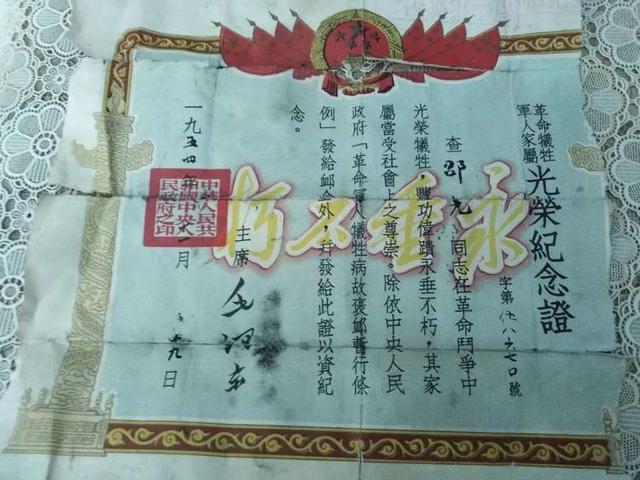 革命犧牲
軍人家屬
光榮紀念證
字第 號
查邵光同志在革命鬥爭中
光榮犧牲,豐功偉蹟永垂不朽,其家
屬當受社會上之尊崇。除依中央人民
政府「革命軍人犧牲病故褒卹暫行條
例」發給卹金外,并發給此證以資紀
念。
永垂不朽
主席 毛澤東
中華人民共
和國中央人
民政府之印
一九五四年 月 日